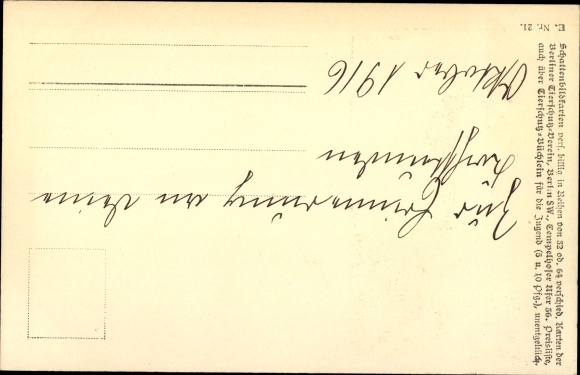 E. Nr. 21.
Schattenbildkarten versf. billig in Reihen von 32 od. 64 verschied. Karten der
Berliner Tierschutz-Verein, Berlin SW., Tempelhofer Ufer 36. Preisliste,
auch über Tierschutz-Büchlein für die Jugend (5 u. 10 Pfg.), unentgeltlich.
Zur Erinnerung an deine
Oktober 1916